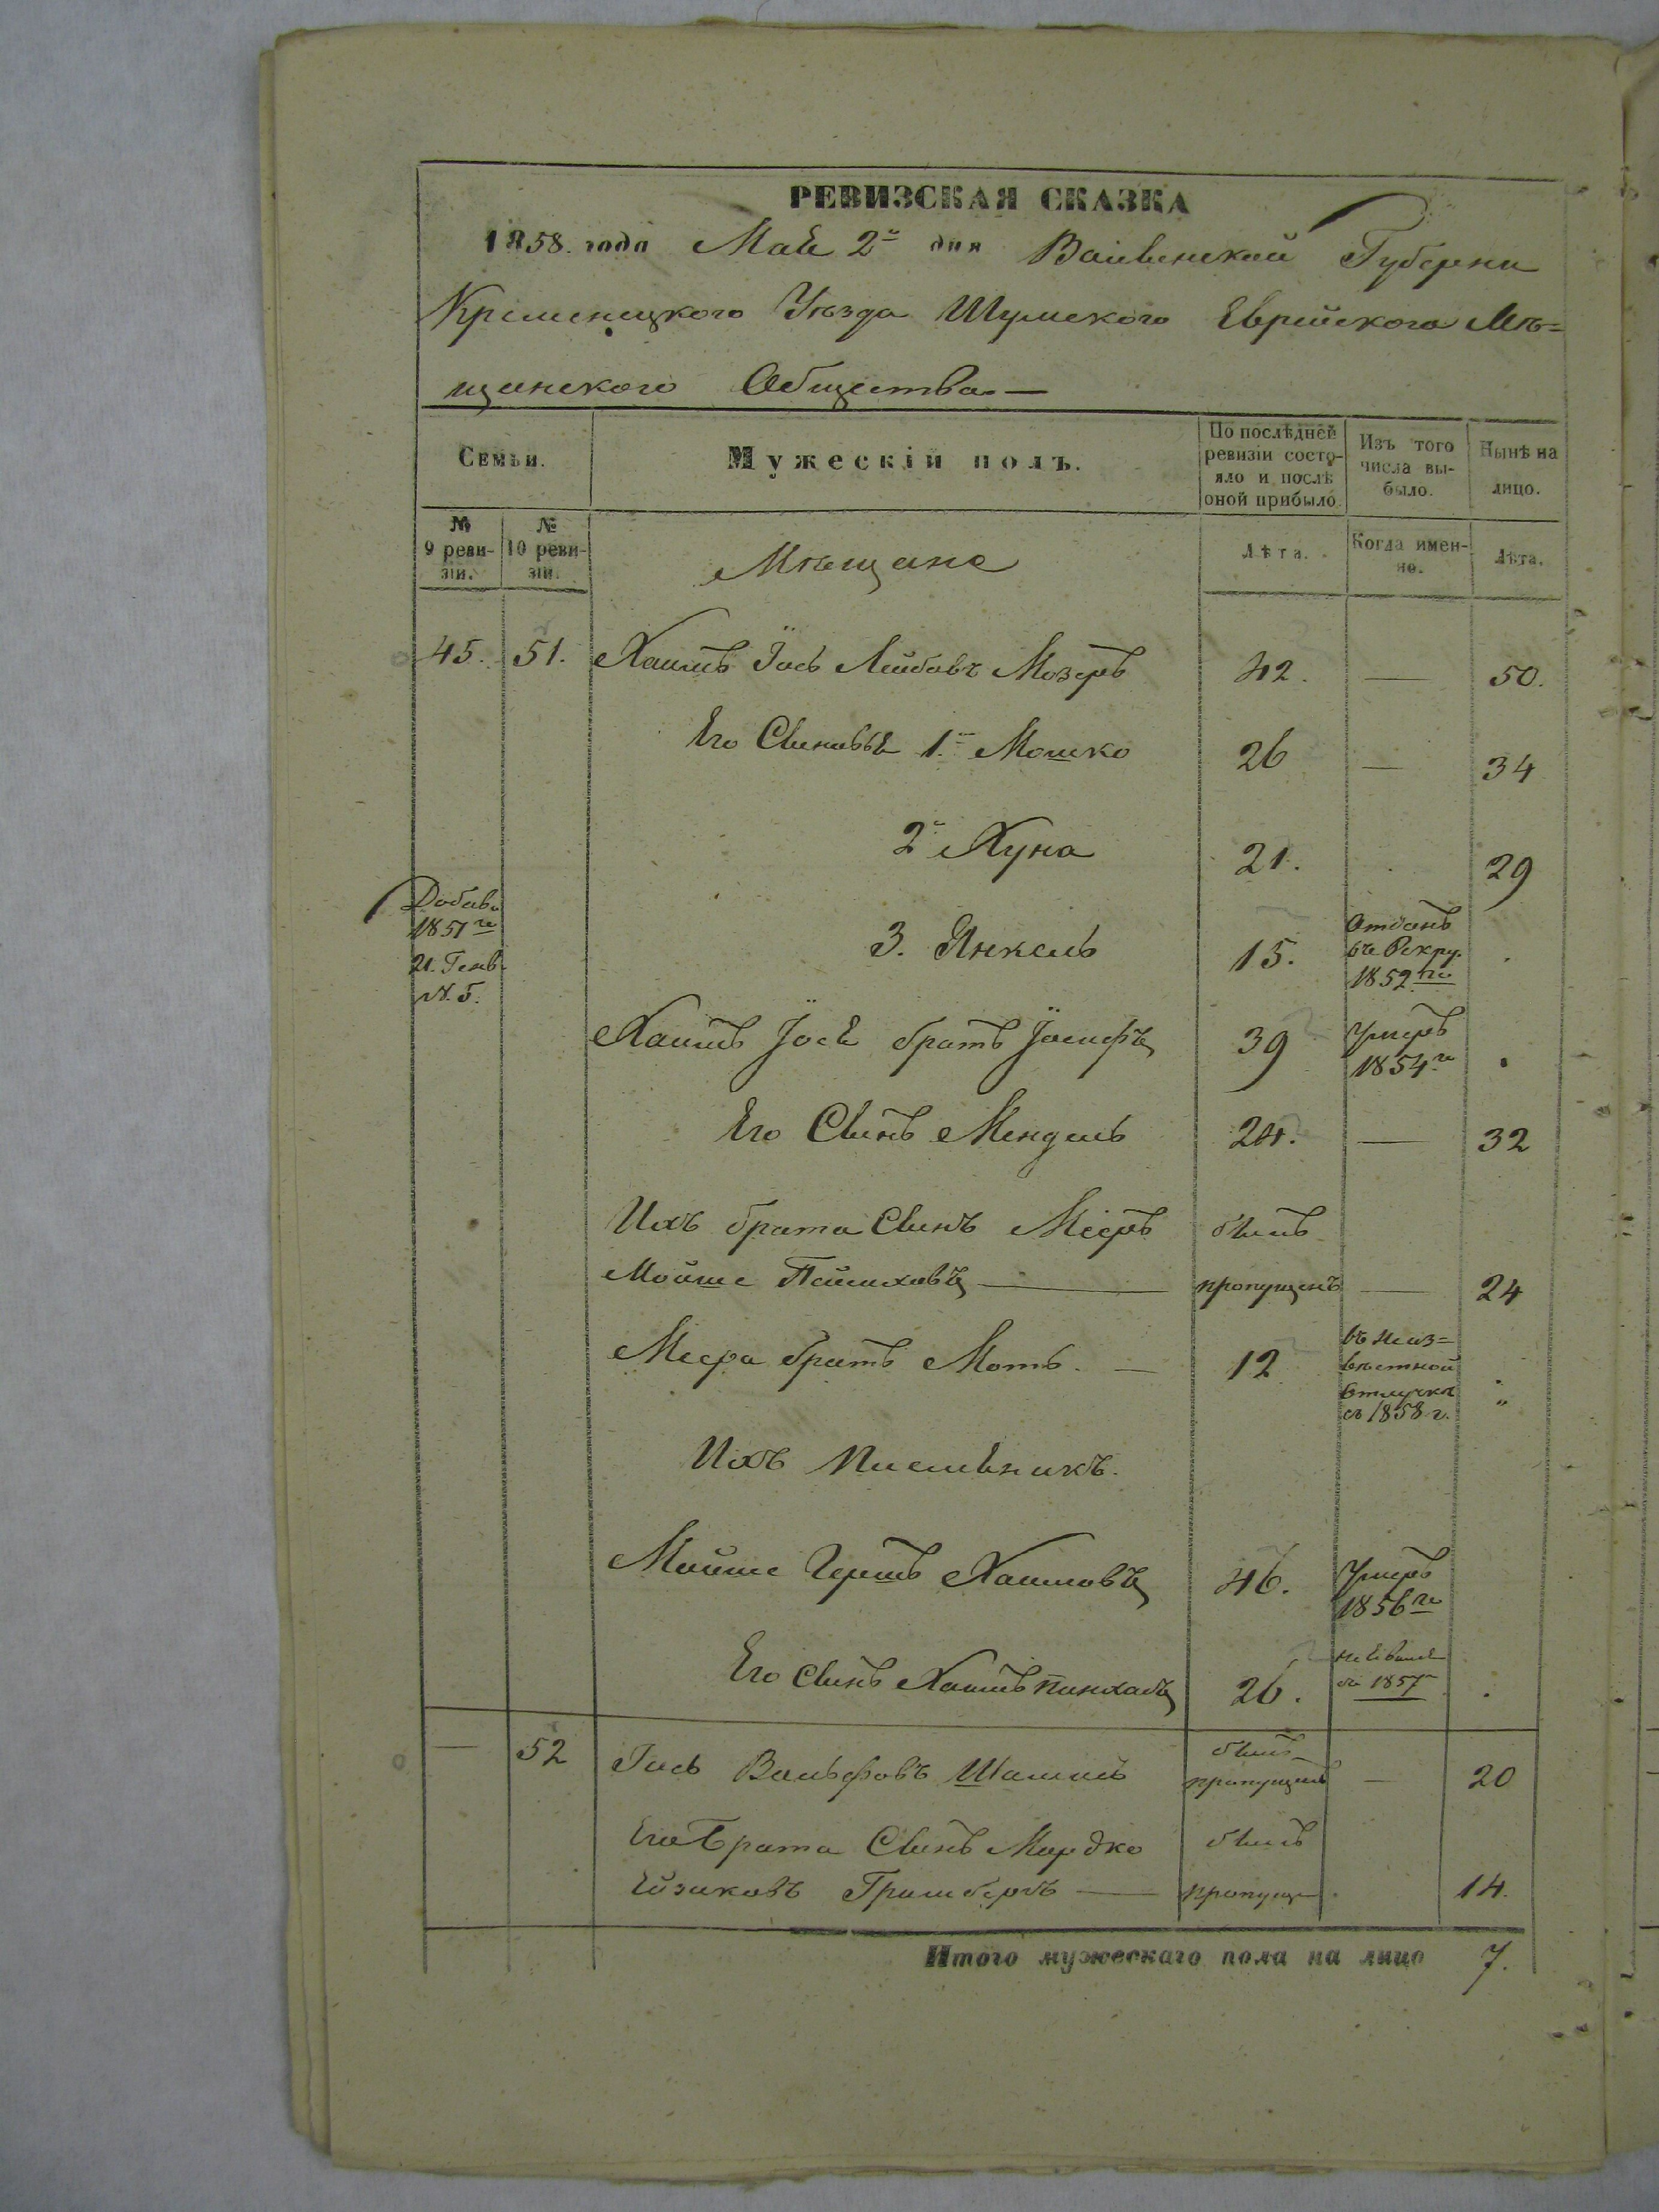 РЕВИЗСКАЯ СКАЗКА
1858. года Мая 2го дня Волынской Губерни
Кременецкого Уѣзда Шумского Еврейского Мѣ=
щанского Общества.—
Семьи.
Мужескій полъ.
По послѣдней
ревизіи состо-
яло и послѣ
оной прибыло.
Изъ того
числа вы-
было.
Нынѣ на
лицо.
№
9 реви-
зіи.
№
10 реви-
зіи.
Мѣщане
Лѣта.
Когда имен-
но.
Лѣта.
45. 51. Хаимъ Іось Лейбовъ Мозеръ 42. — 50.
Его Сыновья 1й Мошко 26 — 34
2й Хуна 21. 29
Добав.
1851 го
21. Генв.
№. 5.
3. Янкель 15.
Отданъ
въ Рекру.
1852 го
Хаимъ Іося братъ Іосифъ 39
Умеръ
1854 го
Его Сынъ Мендель 24. — 32
Ихъ брата Сынъ Меіеръ былъ
Мойше Пейсиховъ — пропущенъ — 24
Меера братъ Моть. — 12
въ неиз=
вѣстной
отлучкѣ
съ 1858 г.
Ихъ Племѣникъ.
Мойше Гершъ Хаимовъ 46.
Умеръ
1856 го
Его Сынъ Хаимъ Пинхасъ 26.
съ 1857
— 52 Іось Вольфовъ
былъ
пропущенъ — 20
Его Брата Сынъ Мордко былъ
Ейзиковъ Гримбергъ — пропущ— 14.
Итого мужескаго пола на лицо 7.